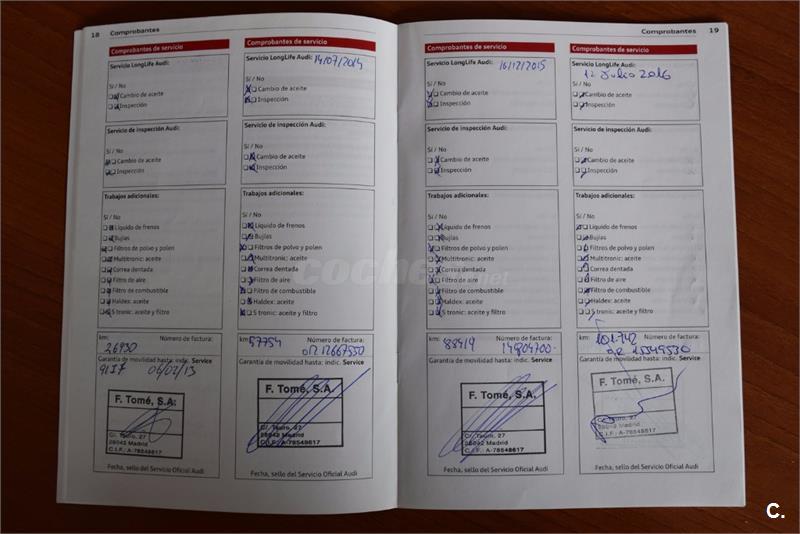 18 Comprobantes
Comprobantes de servicio
Servicio LongLife Audi:
Sí / No
Cambio de aceite
Inspección
Servicio de inspección Audi:
Sí / No
Cambio de aceite
Inspección
Trabajos adicionales:
Sí / No
Líquido de frenos
Bujías
Filtros de polvo y polen
Multitronic: aceite
Correa dentada
Filtro de aire
Filtro de combustible
Haldex: aceite
S tronic: aceite y filtro
km: Número de factura:
26930
06/02/13
Garantía de movilidad hasta: indic. Service
F. Tomé, S.A.
C/. Tauro, 27
28042 Madrid
C.I.F.: A-78548617
Fecha, sello del Servicio Oficial Audi
Comprobantes de servicio
Servicio LongLife Audi:
14/07/2014
Sí / No
Cambio de aceite
Inspección
Servicio de inspección Audi:
Sí / No
Cambio de aceite
Inspección
Trabajos adicionales:
Sí / No
Líquido de frenos
Bujías
Filtros de polvo y polen
Multitronic: aceite
Correa dentada
Filtro de aire
Filtro de combustible
Haldex: aceite
S tronic: aceite y filtro
km: 57754 Número de factura:
Garantía de movilidad hasta: indic. Service
F. Tomé, S.A.
C/. Tauro, 27
28042 Madrid
C.I.F.: A-78548617
Fecha, sello del Servicio Oficial Audi
Comprobantes 19
Comprobantes de servicio
Servicio LongLife Audi:
16/12/2015
Sí / No
Cambio de aceite
Inspección
Servicio de inspección Audi:
Sí / No
Cambio de aceite
Inspección
Trabajos adicionales:
Sí / No
Líquido de frenos
Bujías
Filtros de polvo y polen
Multitronic: aceite
Correa dentada
Filtro de aire
Filtro de combustible
Haldex: aceite
S tronic: aceite y filtro
km: Número de factura:
Garantía de movilidad hasta: indic. Service
F. Tomé, S.A.
C/. Tauro, 27
28042 Madrid
C.I.F.: A-78548617
Fecha, sello del Servicio Oficial Audi
Comprobantes de servicio
Servicio LongLife Audi:
12 Julio 2016
Sí / No
Cambio de aceite
Inspección
Servicio de inspección Audi:
Sí / No
Cambio de aceite
Inspección
Trabajos adicionales:
Sí / No
Líquido de frenos
Bujías
Filtros de polvo y polen
Multitronic: aceite
Correa dentada
Filtro de aire
Filtro de combustible
Haldex: aceite
S tronic: aceite y filtro
km: 101.742 Número de factura:
Garantía de movilidad hasta: indic. Service
F. Tomé, S.A.
28042 Madrid
C.I.F.: A-78548617
Fecha, sello del Servicio Oficial Audi
C.